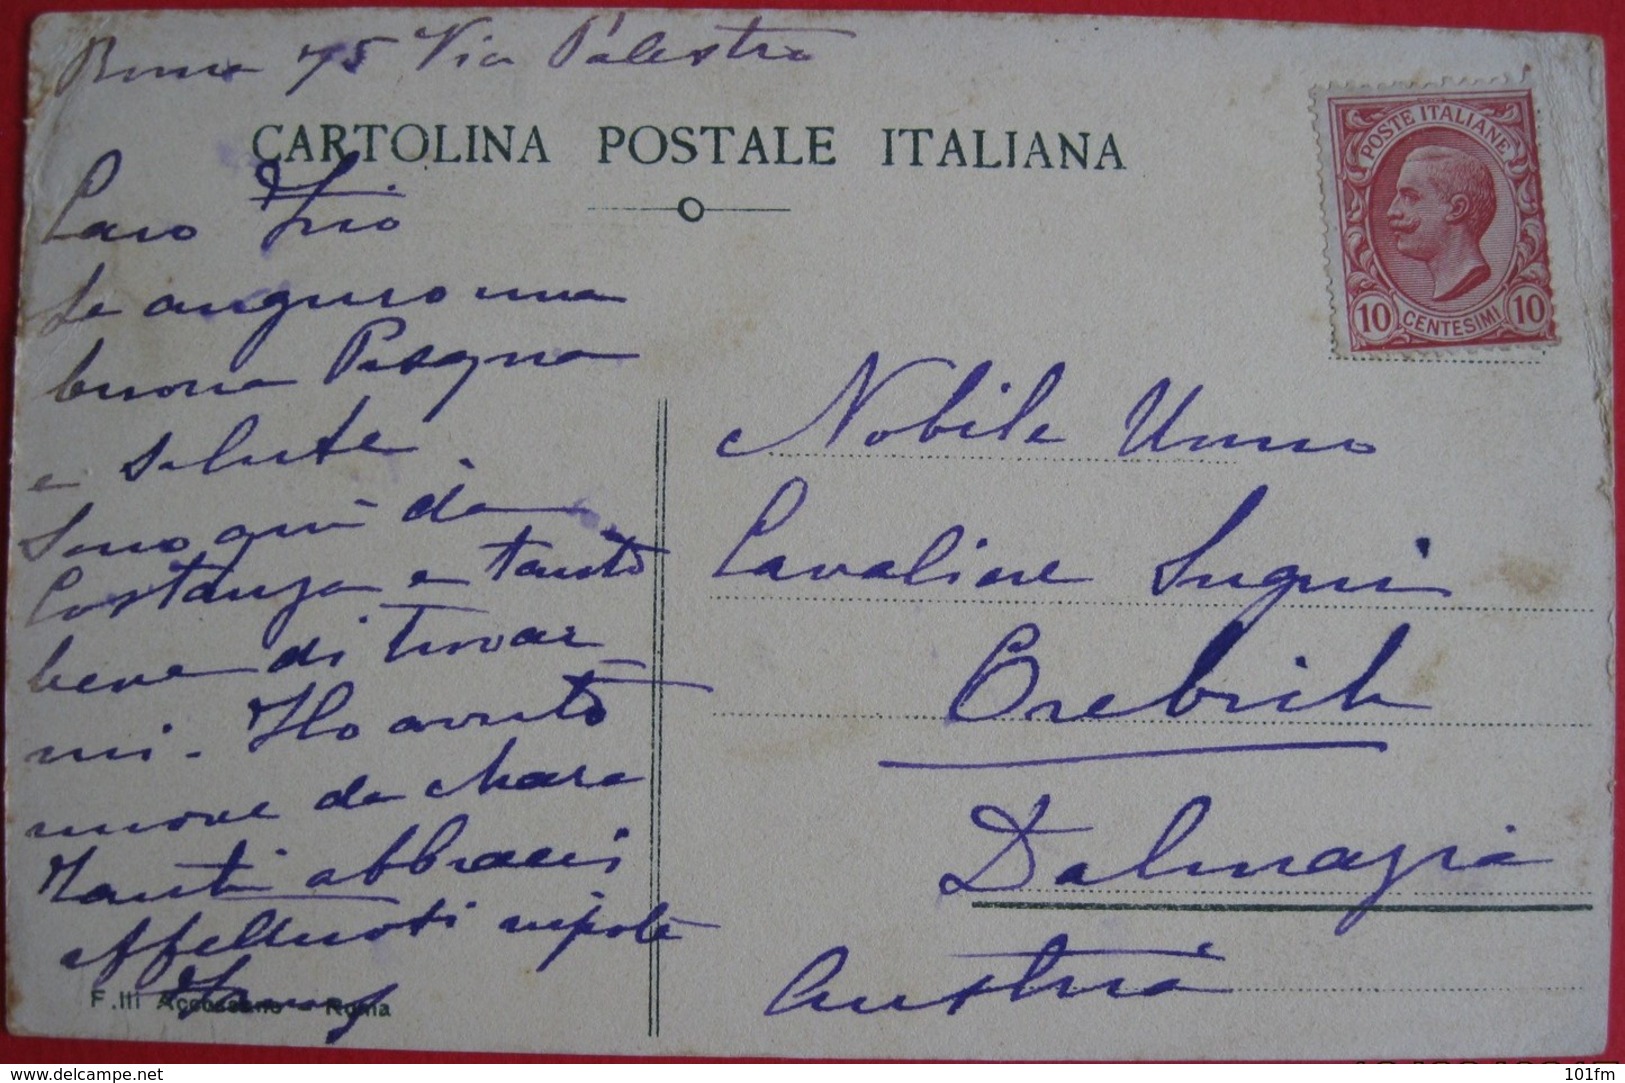 Roma 75 Via Palestro
CARTOLINA POSTALE ITALIANA
POSTE ITALIANE
10 CENTESIMI 10
Caro Zio
Le auguro una
buona Pasqua
e salute
Sono quì da
Costanza e tanto
bene di trovar
mi. Ho avuto
nuove da Mara
Tanti abbracci
affettuosi nipote
Fanny
F.lli Accossano - Roma
Nobile Uomo
Cavaliere
Orebich
Dalmazia
Austria
www.delcampe.net
101fm